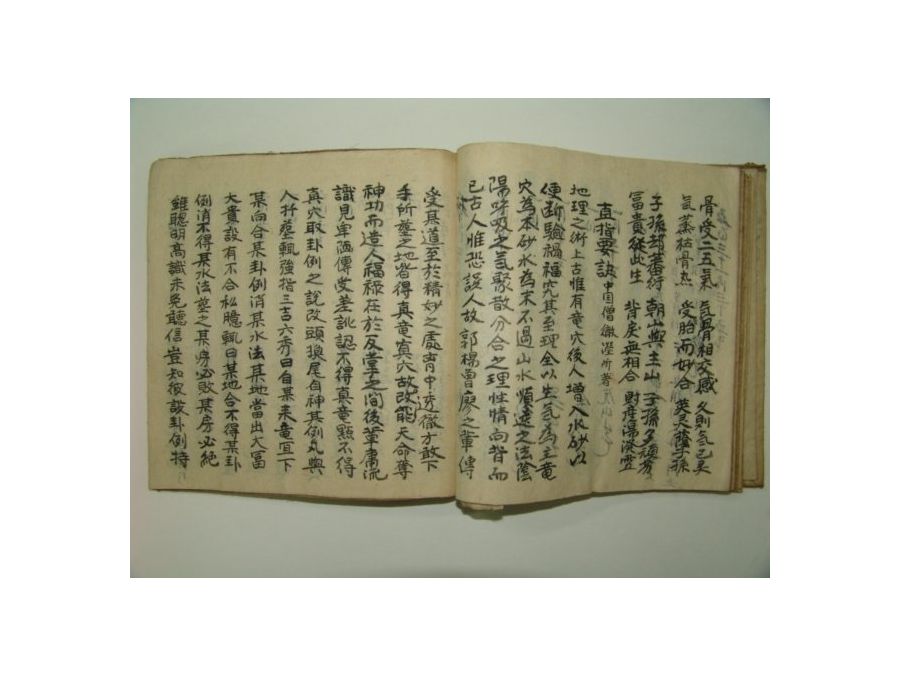 骨受二五氣 氣骨相交感 久則氣已灵
氣蒸枯骨煞 受胎而妙合 英灵蔭子孫
子孫却蕃衍 朝山與主山 子孫多頑劣
富貴從此生 背戾無相合 對座湯潑雪
直指要訣 中国僧 瀅所著
地理之術上古惟有竜穴後人增入水砂以
便断驗禍福究其至理全以生氣為主竜
穴為本砂水為末不過山水順逆之法陰
陽呼吸之氣聚散分合之理性情向背而
已古人惟恐誤人故郭楊曾廖之輩傳
受其道至於精妙之處胷中透徹才敢下
手所塟之地皆得真竜真穴故改能天命奪
神功而造人福祿在於反掌之間後輩庸流
識見卑陋傳受差訛認不得真竜點不得
真穴取卦例之說改頭換尾自神其例丸與
人扦塟輒強指三吉六秀曰自某来竜宜下
某向合某卦例消某水法某地當出大冨
大貴設有不合私臆輒曰某地合不得某卦
例消不得某水法塟之某房必敗某房必絕
雖聰明高識未免聽信豈知彼設卦例特